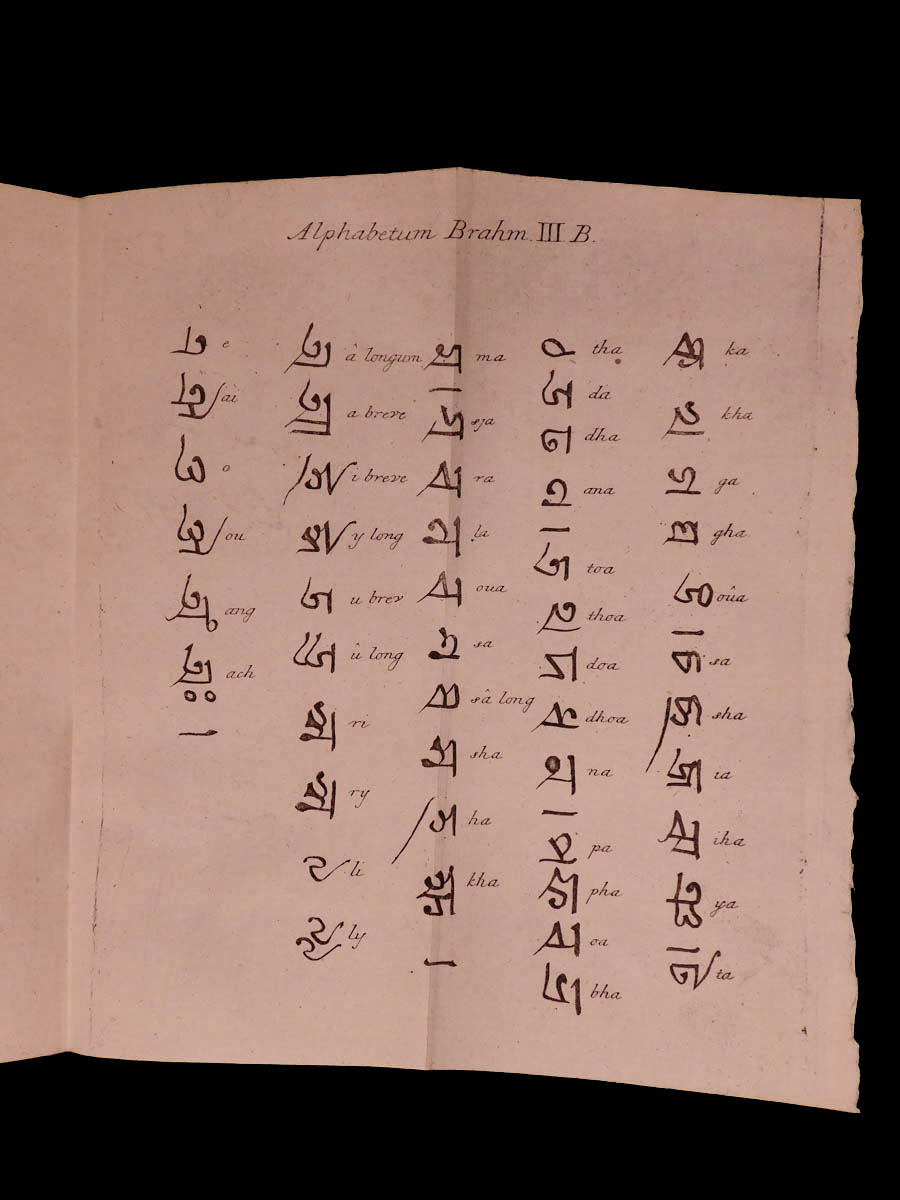 Alphabetum Brahm. III B.
ক ka
খ kha
গ ga
ঘ gha
ঙ oûa
। চ sa
ছ sha
জ ia
ঝ iha
ঞ ya
। ট ta
ঠ tha
ড da
ঢ dha
ণ ana
। ত toa
থ thoa
দ doa
ধ dhoa
ন na
। প pa
ফ pha
ব oa
ভ bha
ম ma
। য sja
র ra
ল la
ব oua
শ sa
ষ sâ long
স sha
হ ha
ক্ষ kha
।
অ â longum
আ a breve
ই i breve
ঈ y long
উ u brev
ঊ û long
ঋ ri
ৠ ry
ঌ li
ৡ ly
এ e
ঐ ai
ও o
ঔ ou
অং ang
অঃ ach
।